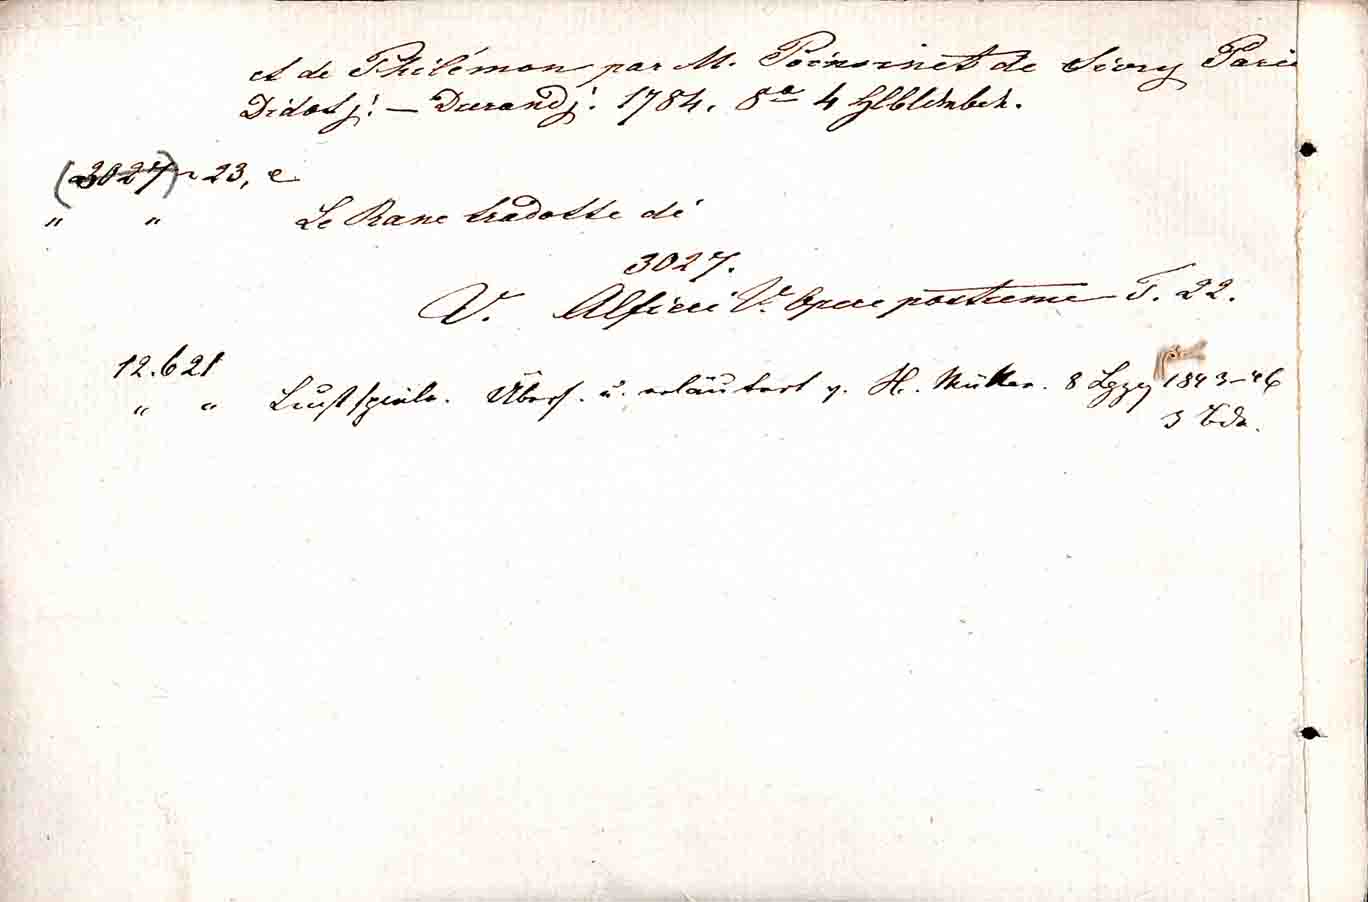 et de Philémon par M. Poinsinet de Sivry Paris
Didot j: — Durand j: 1784. 8º 4 Hlbldrbde.
(3027) 23, e
" " Le Rane tradotte di
3027.
V. Alfieri V. Opere postume T. 22.
12.621
" " Lustspiele. Übers. u. erläutert v. H. Müller. 8 Lpzg 1843–46
3 Bde.